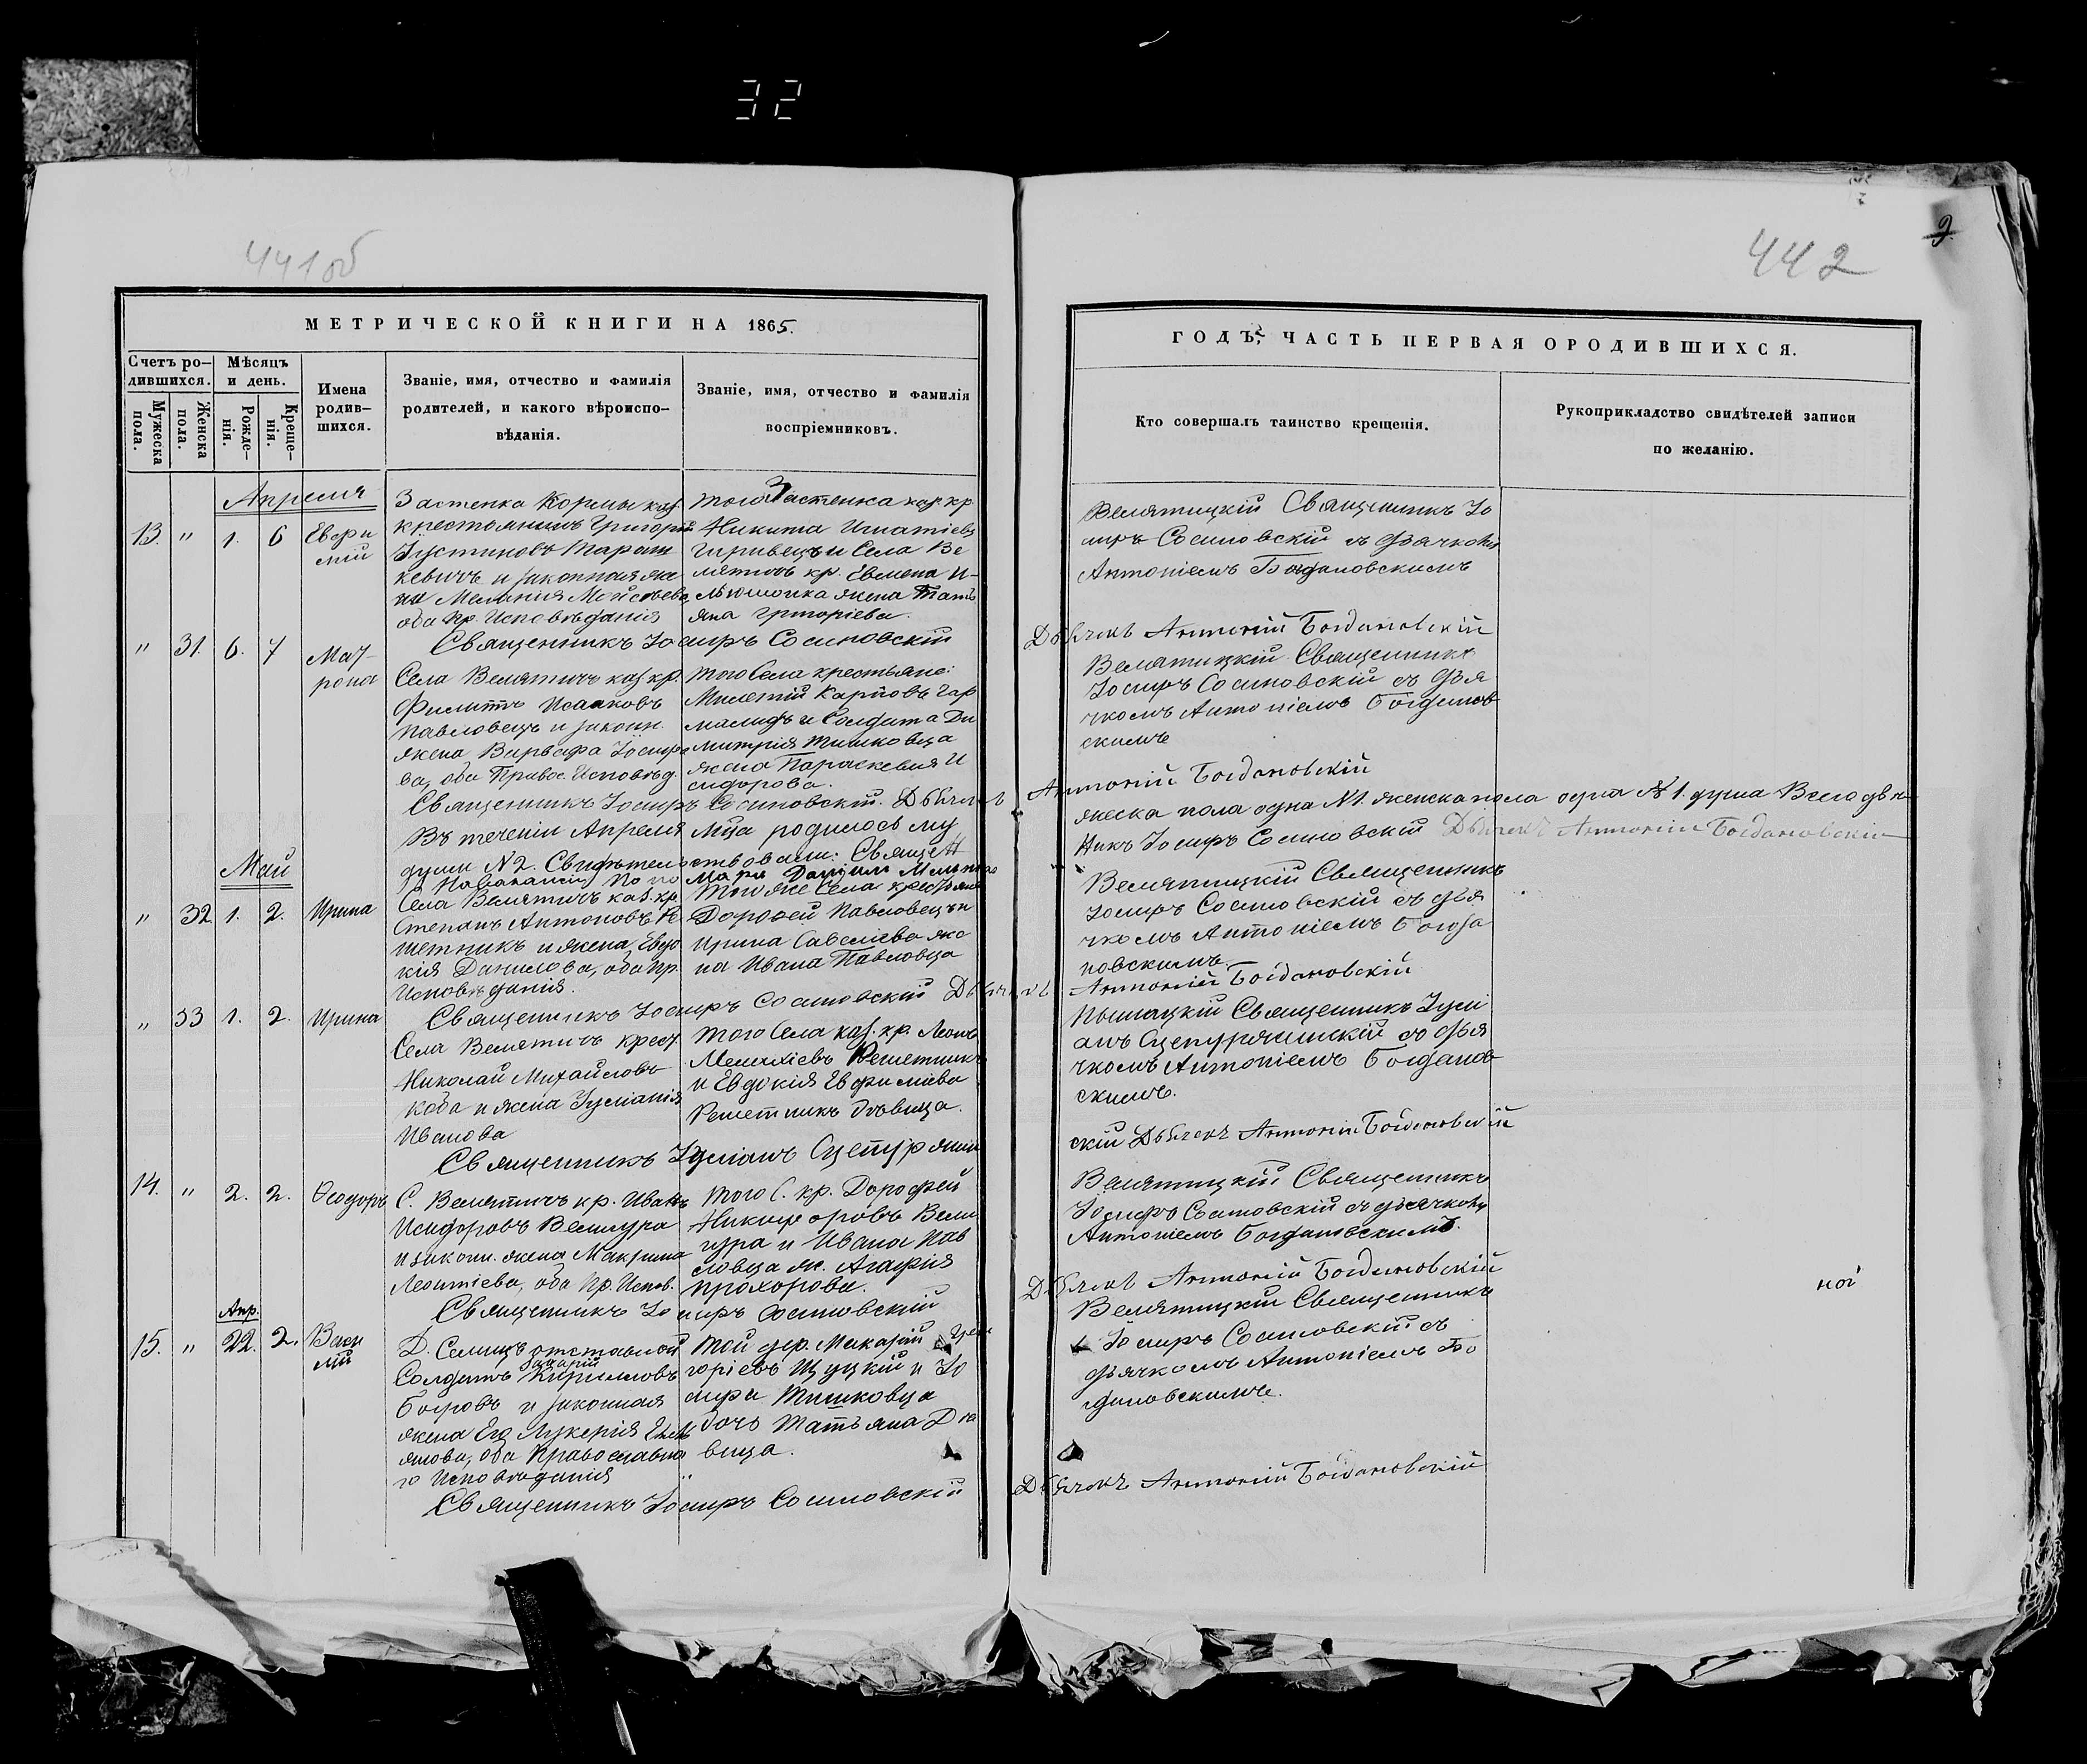 32
441об
442
9.
МЕТРИЧЕСКОЙ КНИГИ НА 1865.
ГОДЪ, ЧАСТЬ ПЕРВАЯ О РОДИВШИХСЯ.
Счетъ ро-
дившихся.
Мужеска
пола.
Женска
пола.
Мѣсяцъ
и день.
Рожде-
нія.
Креще-
нія.
Имена
родив-
шихся.
Званіе, имя, отчество и фамилія
родителей, и какого вѣроиспо-
вѣданія.
Званіе, имя, отчество и фамилія
воспріемниковъ.
Кто совершалъ таинство крещенія.
Рукоприкладство свидѣтелей записи
по желанію.
Апреля
13. " 1. 6 Евфи
мій
Застенка Кормы каз.
крестьянинъ Григорій
Іустиновъ Тараш
кевичъ и законная же
на Меланія Мойсѣева,
оба пр. Исповѣданія
того Застенка каз. кр
Никита Игнатіевъ
и Села Ве
лятичъ кр. Евмена И-
жена Тать
яна Григоріева.
Велятицкій Священникъ Іо
сифъ Сосиновскій съ дьячкомъ
Антоніемъ Богдановскимъ
Священникъ Іосифъ Сосиновскій Дьячекъ Антоній Богдановскій
" 31. 6. 7 Мат-
рона
Села Велятичъ каз. кр.
Филиппъ Исааковъ
Павловецъ и законн.
жена Варвара Іосифо
ва, оба Правос. Исповѣд.
того Села крестьяне:
Милетій Карповъ Гар
и Солдата Ди
митрія Тишковца
жена Параскевия И
сидорова.
Велятицкій Священникъ
Іосифъ Сосиновскій съ дья
чкомъ Антоніемъ Богданов
скимъ
Священникъ Іосифъ Сосиновскій. Дьячекъ Антоній Богдановскій
Въ теченіи Апреля мца родилось му жеска пола одна N 1. женска пола одна N 1. душа Всего двѣ
души N 2. Свидѣтельствовали: Священ никъ Іосифъ Сосиновскій Дьячекъ Антоній Богдановскій
Май
" 32 1. 2. Ирина
Села Велятичъ каз. кр.
Степанъ Антоновъ Ре
шетникъ и жена Евдо
кія Данилова, оба пр.
Исповѣданія.
Того же Села крестьяне
Дорофей Павловецъ и
Ирина Савеліева же
на Ивана Павловца
Велятицкій Священникъ
Іосифъ Сосиновскій съ дья
чкомъ Антоніемъ Богда
новскимъ.
Священникъ Іосифъ Сосиновскій Дьячекъ Антоній Богдановскій
" 33 1. 2. Ирина
Села Велятичъ крест.
Николай Михайловъ
и жена Іуліанія
Иванова
того Села каз. кр. Леонъ
Решетникъ
и Евдокія Евфиміева
Решетникъ дѣвица.
Священникъ Іулі
анъ
чкомъ Антоніемъ Богданов
скимъ.
Священникъ Іуліанъ
скій Дьячекъ Антоній Богдановскій
14. " 2. 2. Ѳеодоръ
С. Велятичъ кр. Иванъ
Исидоровъ Велигура
и законн. жена Макрина
Леонтіева, оба Пр. Испов.
того С. кр. Дорофей
Никифоровъ Вели
гура и Ивана Пав
ловца ж. Агафія
Прохорова.
Велятицкій Священникъ
Іосифъ Сосиновскій съ дьячкомъ
Антоніемъ Богдановскимъ.
Священникъ Іосифъ Сосиновскій Дьячекъ Антоній Богдановскій
ной
Апр.
15. " 22. 2. Васи
лій
Д. Селищъ отставной
Захарій
Солдатъ Кирилловъ
Бобровъ и законная
жена Его Лукерія Емель
янова, оба Православна
го Исповѣданія
Той дер. Макарій Григ
горіевъ Щуцкій и Іо
сифа Тишковца
дочь Татьяна Дѣ
вица.
Велятицкій Священникъ
Іосифъ Сосиновскій съ
дьячкомъ Антоніемъ Бо
гдановскимъ.
Священникъ Іосифъ Сосиновскій Дьячекъ Антоній Богдановскій